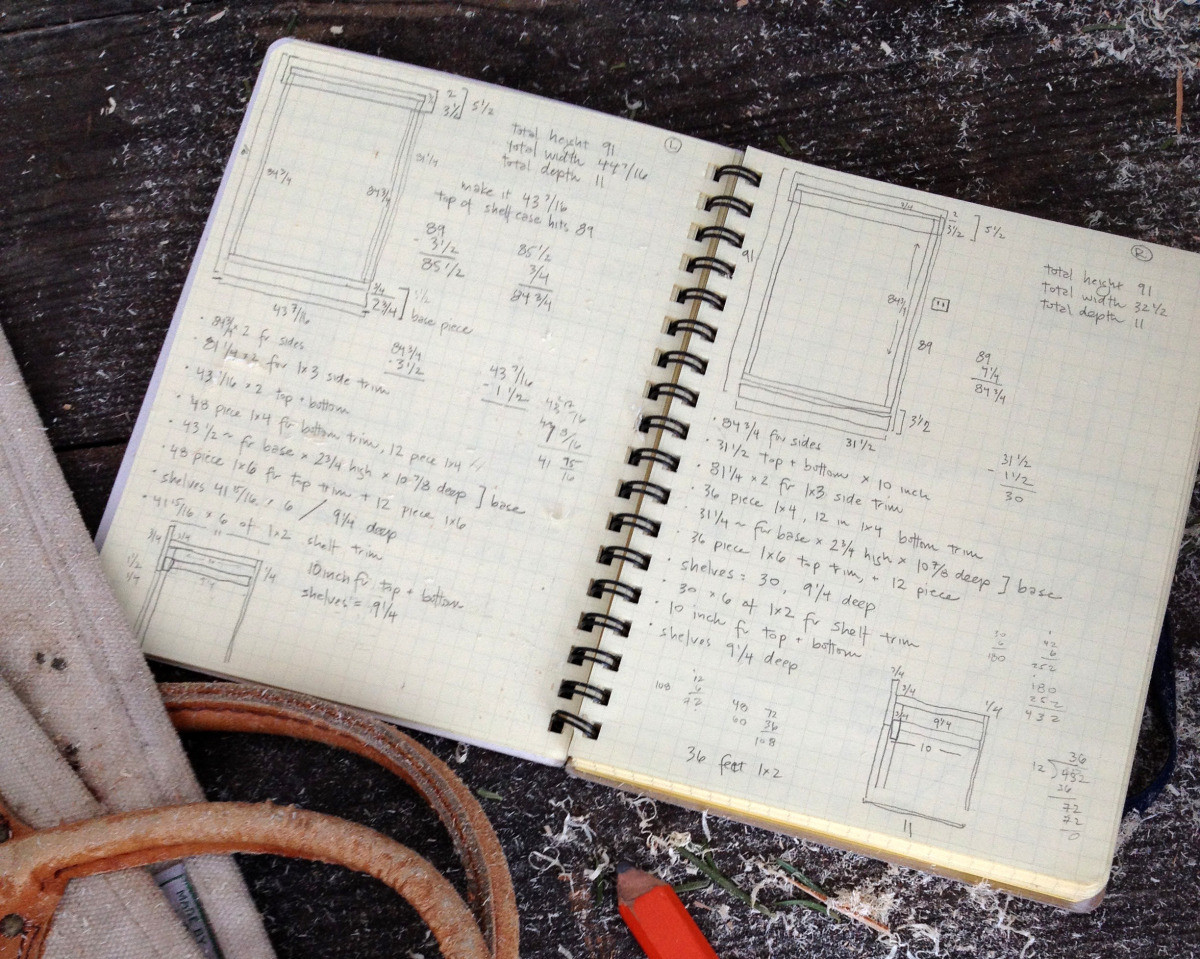 2
3 1/2
5 1/2
L
total height 91
total width 44 7/16
total depth 11
make it 43 7/16
top of shelf case hits 89
84 3/4
84 3/4
81 1/4
89
- 3 1/2
85 1/2
85 1/2
3/4
84 3/4
3/4
2 3/4
base piece
43 7/16
84 3/4
- 3 1/2
43 7/16
- 1 1/2
41 15/16
• 84 3/4 × 2 for sides
• 81 1/4 × 2 for 1x3 side trim
• 43 7/16 × 2 top + bottom
• 48 piece 1x4 for bottom trim, 12 piece 1x4
• 43 1/2 ~ for base × 2 3/4 high × 10 7/8 deep ] base
• 48 piece 1x6 for top trim + 12 piece 1x6
• shelves 41 15/16 × 6 / 9 1/4 deep
• 41 15/16 × 6 of 1x2 shelf trim
3/4
1/4
1/2
1/4
10 inch for top + bottom
shelves = 9 1/4
R
3/4
2
3 1/2
5 1/2
91
84 3/4
11
89
3 1/2
31 1/2
total height 91
total width 32 1/2
total depth 11
89
4 1/4
84 3/4
31 1/2
- 1 1/2
30
• 84 3/4 for sides
• 31 1/2 top + bottom × 10 inch
• 81 1/4 × 2 for 1x3 side trim
• 36 piece 1x4, 12 in 1x4 bottom trim
• 31 1/4 ~ for base × 2 3/4 high × 10 7/8 deep ] base
• 36 piece 1x6 top trim, + 12 piece
• shelves = 30, 9 1/4 deep
• 30 × 6 of 1x2 for shelf trim
• 10 inch for top + bottom
• shelves 9 1/4 deep
30
6
180
42
6
252
180
252
432
108
12
6
72
48
60
72
36
108
36 feet 1x2
3/4
3/4
3/4
1/4
9 1/4
10
11
36
12 )432
36
72
72
0